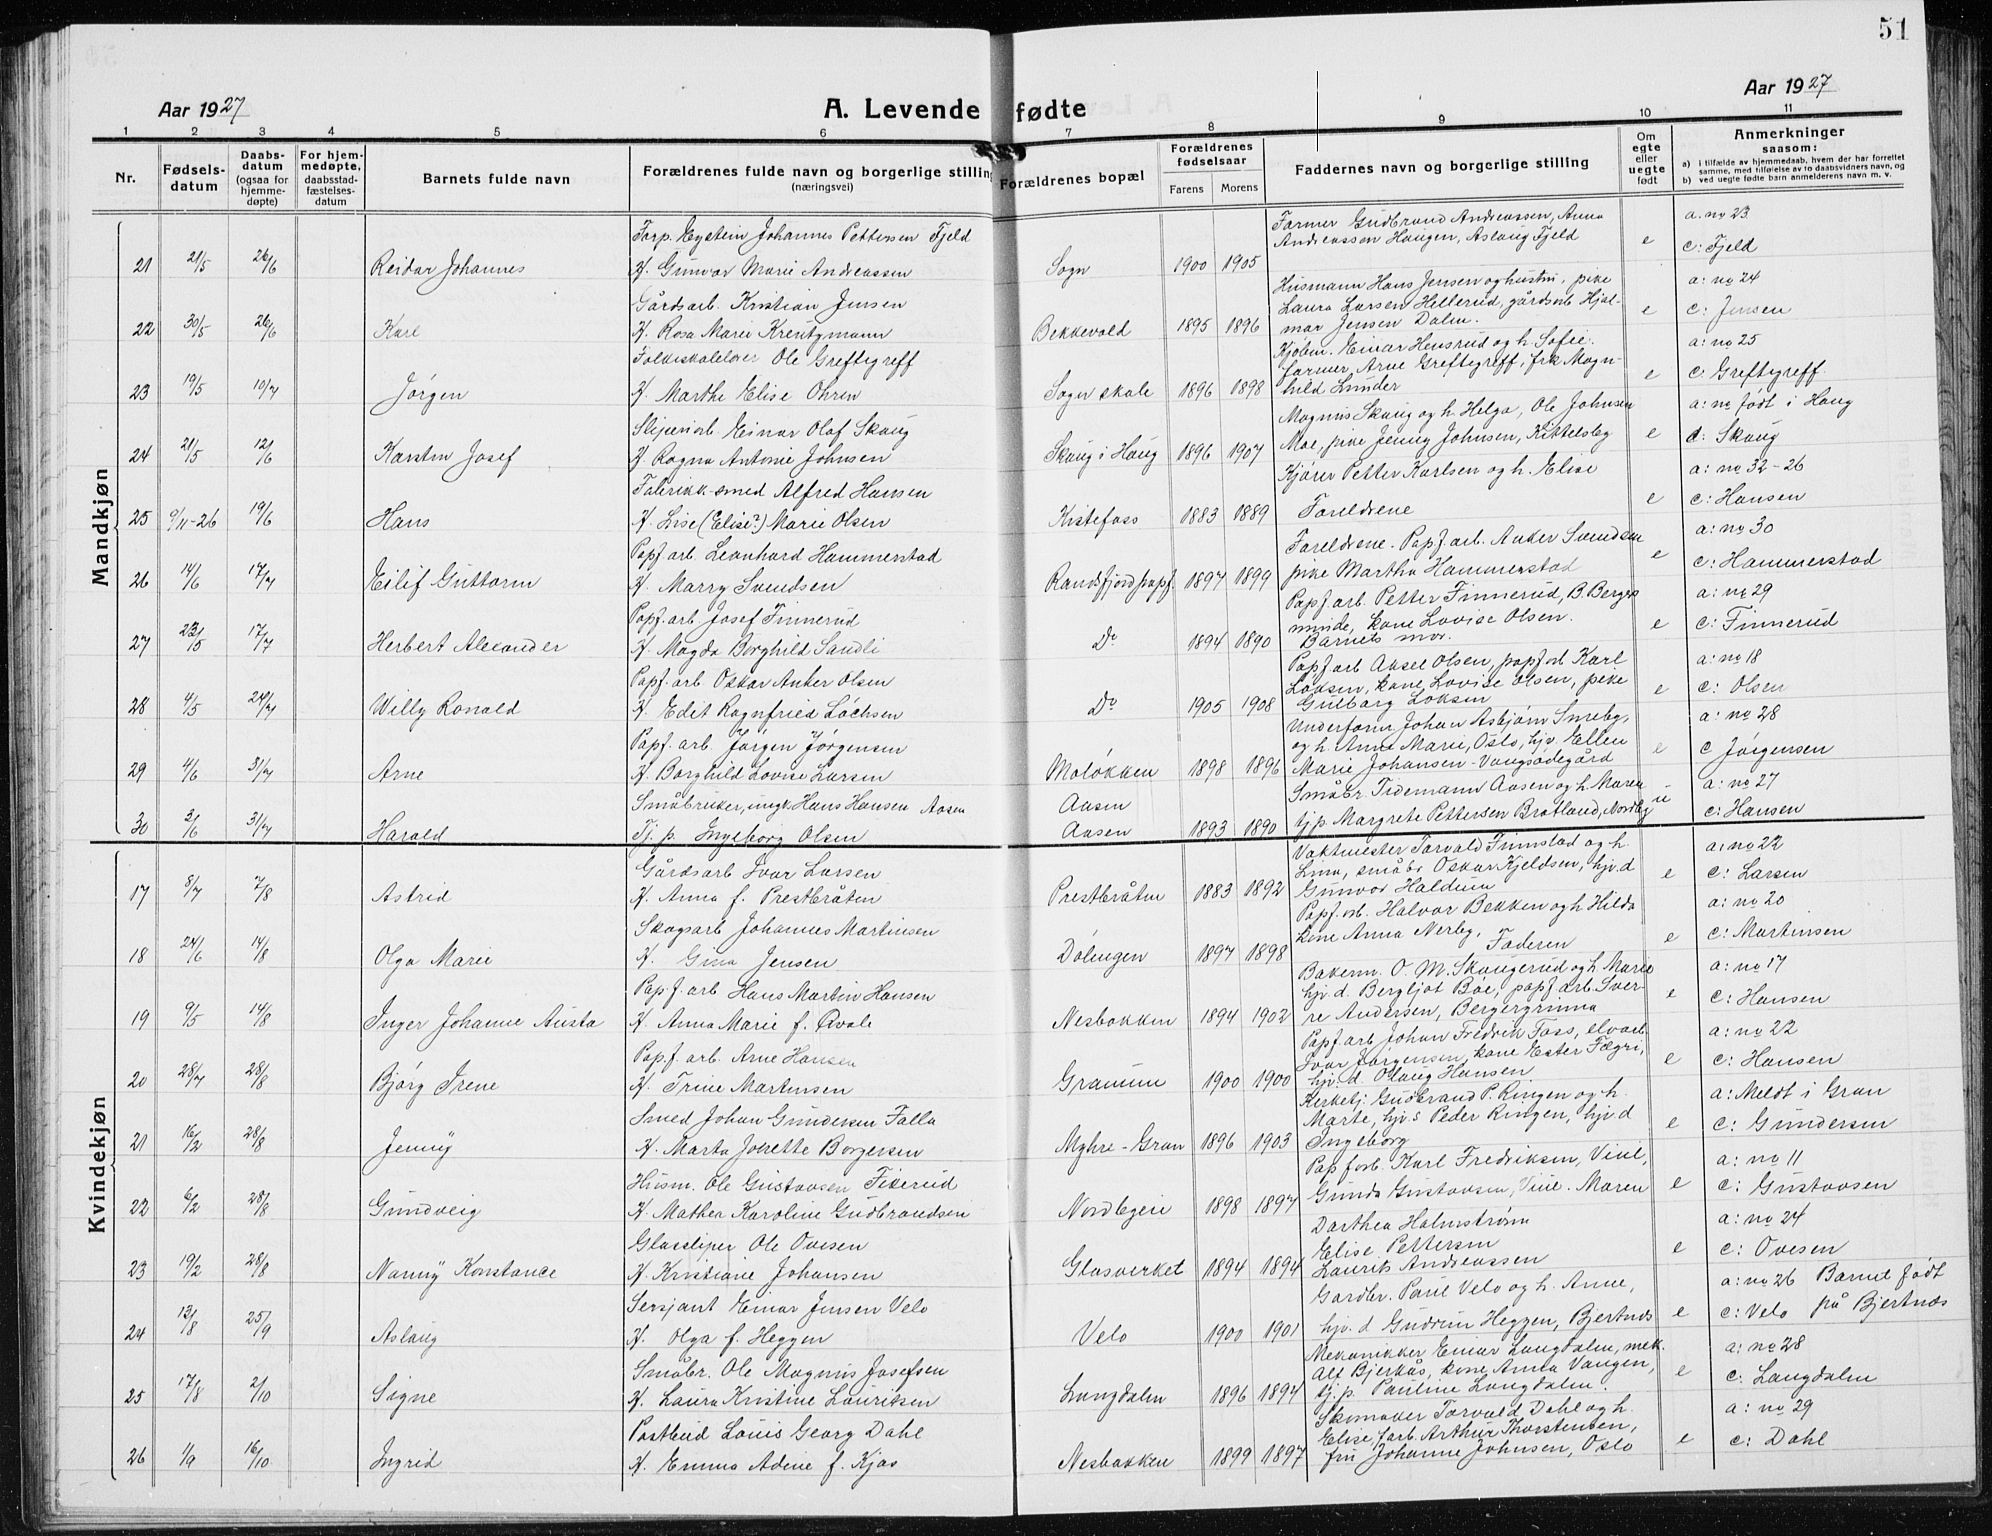 51
Aar 1927
A. Levende fødte
Aar 1927
1 2 3 4 5 6 7 8 9 10 11
Nr.
Fødsels-
datum
Daabs-
datum
(ogsaa for
hjemme-
døpte)
For hjem-
medøpte,
daabsstad-
fæstelses-
datum
Barnets fulde navn
Forældrenes fulde navn og borgerlige stilling
(næringsvei)
Forældrenes bopæl
Forældrenes
fødselsaar
Farens Morens
Faddernes navn og borgerlige stilling
Om
egte
eller
uegte
født
Anmerkninger
saasom:
a) i tilfælde av hjemmedaab, hvem der har forrettet
samme, med tilføielse av to daabsvidners navn, og
b) ved uegte fødte barn anmelderens navn m. v.
Mandkjøn
Forp. Eystein Johannes Pettersen Fjeld
Farmer Gudbrand Andreassen, Anna
Andreassen Haugen, Aslaug Fjeld
a. no 23
21 21/5 26/6 Reidar Johannes H. Gunvor Marie Andreassen Sogn 1900 1905 e c: Fjeld
Gårdsarb. Kristian Jensen
Husmann Hans Jensen og hustru, pike
Laura Larsen Hellerud, gårdsarb Hjal-
mar Jensen Dalen.
a: no 24
22 30/5 26/6 Karl H. Rosa Marie Krentzmann Bekkevold 1895 1896 e c: Jensen
Folkeskolelærer Ole Greftegreff
Kjøbm. Einar Hensrud og h. Sofie.
farmer, Arne Greftegreff, frk Magn-
hild Lunder
a: no 25
23 19/5 10/7 Jørgen H. Marthe Elise Ohren Sogn skole 1896 1898 e c. Greftegreff
Sliperiarb. Einar Olaf Skaug
Magnus Skaug og h. Helga, Ole Johnsen
Moe, pike Jenny Johnsen, Kittelsby
a: no født i Haug
24 21/5 12/6 Karsten Josef H Ragna Antonie Johnsen Skaug i Haug 1896 1907 e d: Skaug
Fabrikk-smed Alfred Hansen
Kjører Petter Karlsen og h. Elise
Foreldrene
a: no 32-26
25 9/11-26 19/6 Hans H. Lise (Elise?) Marie Olsen Kistefoss 1883 1889 e c: Hansen
Papf. arb. Leonhard Hammerstad
Foreldrene. Papf. arb. Anker Svendsen
pike Martha Hammerstad
a: no 30
26 14/6 17/7 Eilif Guttorm H. Marry Svendsen Randsfjord papf. 1897 1899 e c: Hammerstad
Papf. arb. Josef Finnerud
Papf. arb. Petter Finnerud, B. Berger
minde, kone Lovise Olsen.
Barnets mor.
a: no 29
27 23/5 17/7 Herbert Alexander H. Magda Borghild Sandli Do 1894 1890 e c: Finnerud
Papf. arb. Oskar Anker Olsen
Papf. arb Aksel Olsen, papf. arb Karl
Loksen, kone Lovise Olsen, pike
Gulborg Loksen
a: no 18
28 4/5 24/7 Willy Ronald H. Edit Ragnfried Lochsen Do 1905 1908 e c: Olsen
Papf. arb Jørgen Jørgensen
Underform. Johan Asbjørn Smeby,
og h. Anna Marie, Oslo, hjv. Ellen
Marie Johansen-Vangsødegård
a: no 28
29 4/6 31/7 Arne H. Borghild Lovise Larsen Moløkken 1898 1896 e c Jørgensen
Småbruker, ungk. Hans Hansen Aasen
Aasen
Småbr. Tidemann Aasen og h. Maren
tjp. Margrete Pettersen Brøtland, Nordby
a: no 27
30 3/6 31/7 Harald Tj. p. Ingeborg Olsen Aasen 1893 1890 u c: Hansen
Kvindekjøn
Gårdsarb Ivar Larsen
Vaktmester Torvald Finnstad og h.
Lina, småbr. Oskar Kjeldsen, hjv. d
Gunvor Haldum
a: no 22
17 8/7 7/8 Astrid H. Anna f. Prestbråten Prestbråten 1883 1892 e c: Larsen
Skogsarb Johannes Martinsen
Papf. arb. Halvor Bekken og h Hilda
kone Anna Nerby, Faderen
a: no 20
18 24/6 14/8 Olga Marie H. Gina Jensen Dølengen 1897 1898 e c: Martinsen
Pap. f. arb Hans Martin Hansen
Bakerm. O. M. Skaugerud og h. Marie
hjv. d. Bergljot Bøe, papf. arb. Sver-
re Andersen, Bergergrinna
a: no 17
19 9/5 14/8 Inger Johanne Austa H. Anna Marie f. Øvale Nesbakken 1894 1902 e c: Hansen
Pap. f. arb. Arne Hansen
Papf. arb Johan Fredrik Foss, elvarb.
Ivar Jørgensen, kone Ester Fægri,
hjv. d. Olaug Hansen
a: no 22
20 28/7 28/8 Bjørg Irene H. Trine Martinsen Gramm 1900 1900 e c: Hansen
Smed Johan Gundersen Falla
Kirketj. Gudbrand P. Ringen og h.
Marte, hjv. s Peder Ringen, hjv. d
Ingeborg
a: Meldt i Gran
21 16/2 28/8 Jenny H. Marta Josette Borgersen Myhre-Gran 1896 1903 e c: Gundersen
Husm. Ole Gustavsen Fikerud
Pap f. arb. Karl Fredriksen, Viul,
Gunda Gustavsen, Viul. Maren
a: no 11
22 6/2 28/8 Gundveig H. Mathea Karoline Gudbrandsen Nordbyeie 1898 1897 e c: Gustavsen
Glassliper Ole Ovesen
Darthea Holmstrøm
Elise Pettersen
Laurits Andreassen
a: no 24
23 19/2 28/8 Nanny Konstance H. Kristiane Johansen Glasverket 1894 1894 e c: Ovesen
Sersjant Einar Jensen Velo
Gardbr. Paul Velo og h. Anne,
hjv. d Gudrun Heggen, Bjertnæs
a: no 26 Barnet født
24 13/8 25/9 Aslaug H. Olga f. Heggen Velo 1900 1901 e c: Velo på Bjertnæs
Småbr. Ole Magnus Josefsen
Mekanikker Einar Langdalen, mek.
Alf Bjerkås, kone Anna Vangen,
tj. p. Pauline Langdalen.
a: no 28
25 17/8 2/10 Signe H. Laura Kristine Lauriksen Langdalen 1896 1894 e c: Langdalen
Postbud Louis Georg Dahl
Skomaker Torvald Dahl og h.
Elise, farb. Arthur Thorstensen,
fru Johanne Johnsen, Oslo
a: no 29
26 1/9 16/10 Ingrid H. Emma Adene f. Kjos Nesbakken 1899 1897 e c: Dahl